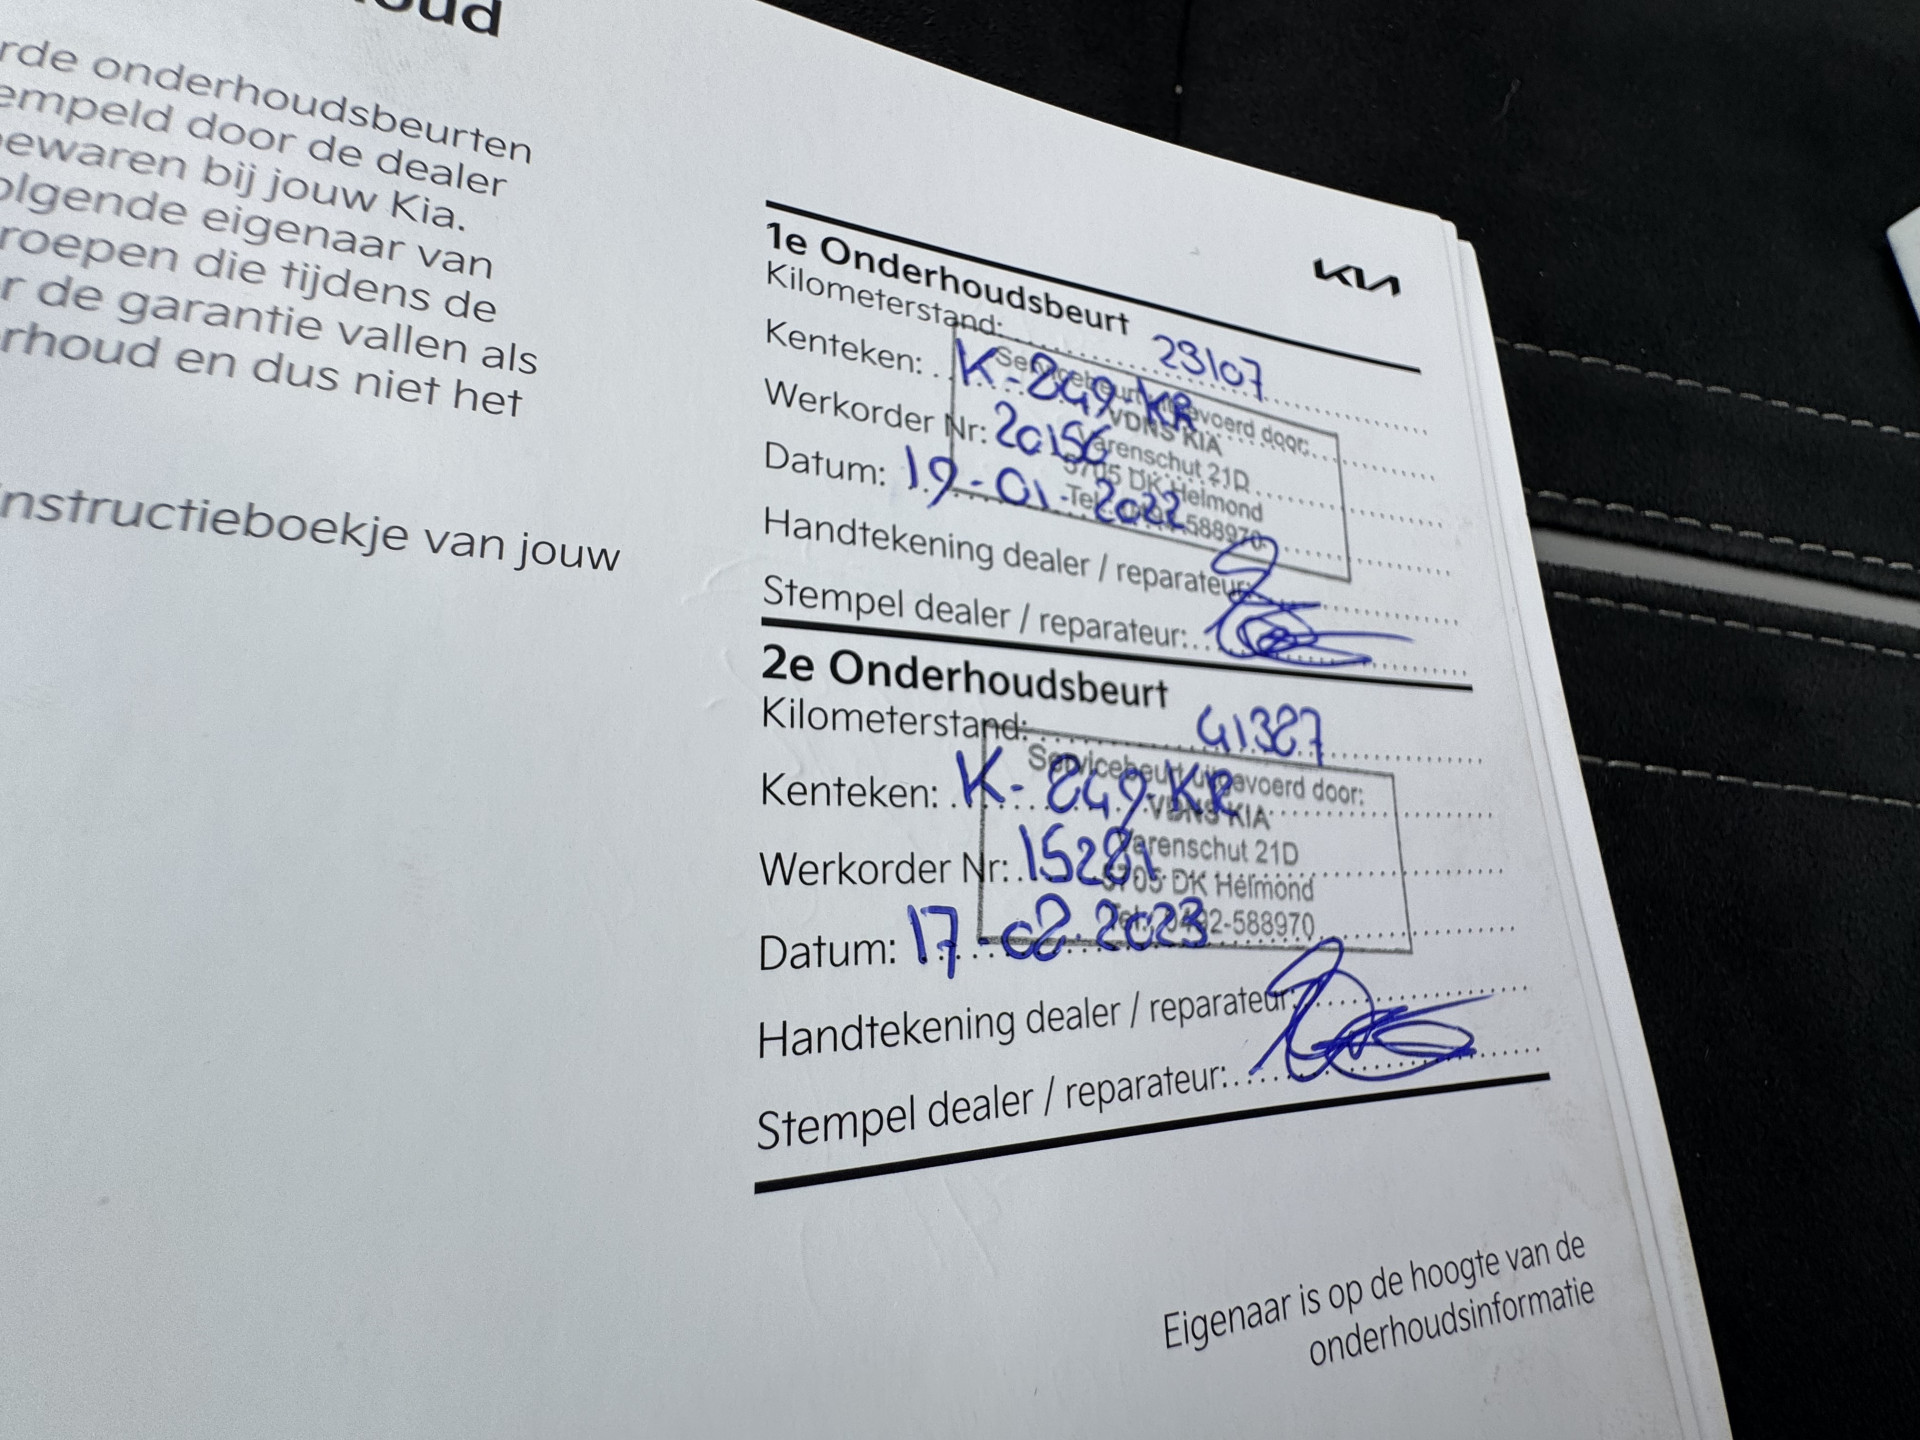 oud
rde onderhoudsbeurten
empeld door de dealer
ewaren bij jouw Kia.
olgende eigenaar van
roepen die tijdens de
r de garantie vallen als
rhoud en dus niet het
instructieboekje van jouw
KIA
1e Onderhoudsbeurt
Kilometerstand: 23107
Kenteken: K-849-KR
Werkorder Nr: 20156
Datum: 19-01-2022
Handtekening dealer / reparateur:
Stempel dealer / reparateur:
Servicebeurt uitgevoerd door:
VDNS KIA
Varenschut 21D
5705 DK Helmond
Tel.: 0492-588970
2e Onderhoudsbeurt
Kilometerstand: 41387
Kenteken: K-849-KR
Werkorder Nr: 15281
Datum: 17-02-2023
Handtekening dealer / reparateur:
Stempel dealer / reparateur:
Servicebeurt uitgevoerd door:
VDNS KIA
Varenschut 21D
5705 DK Helmond
Tel.: 0492-588970
Eigenaar is op de hoogte van de
onderhoudsinformatie